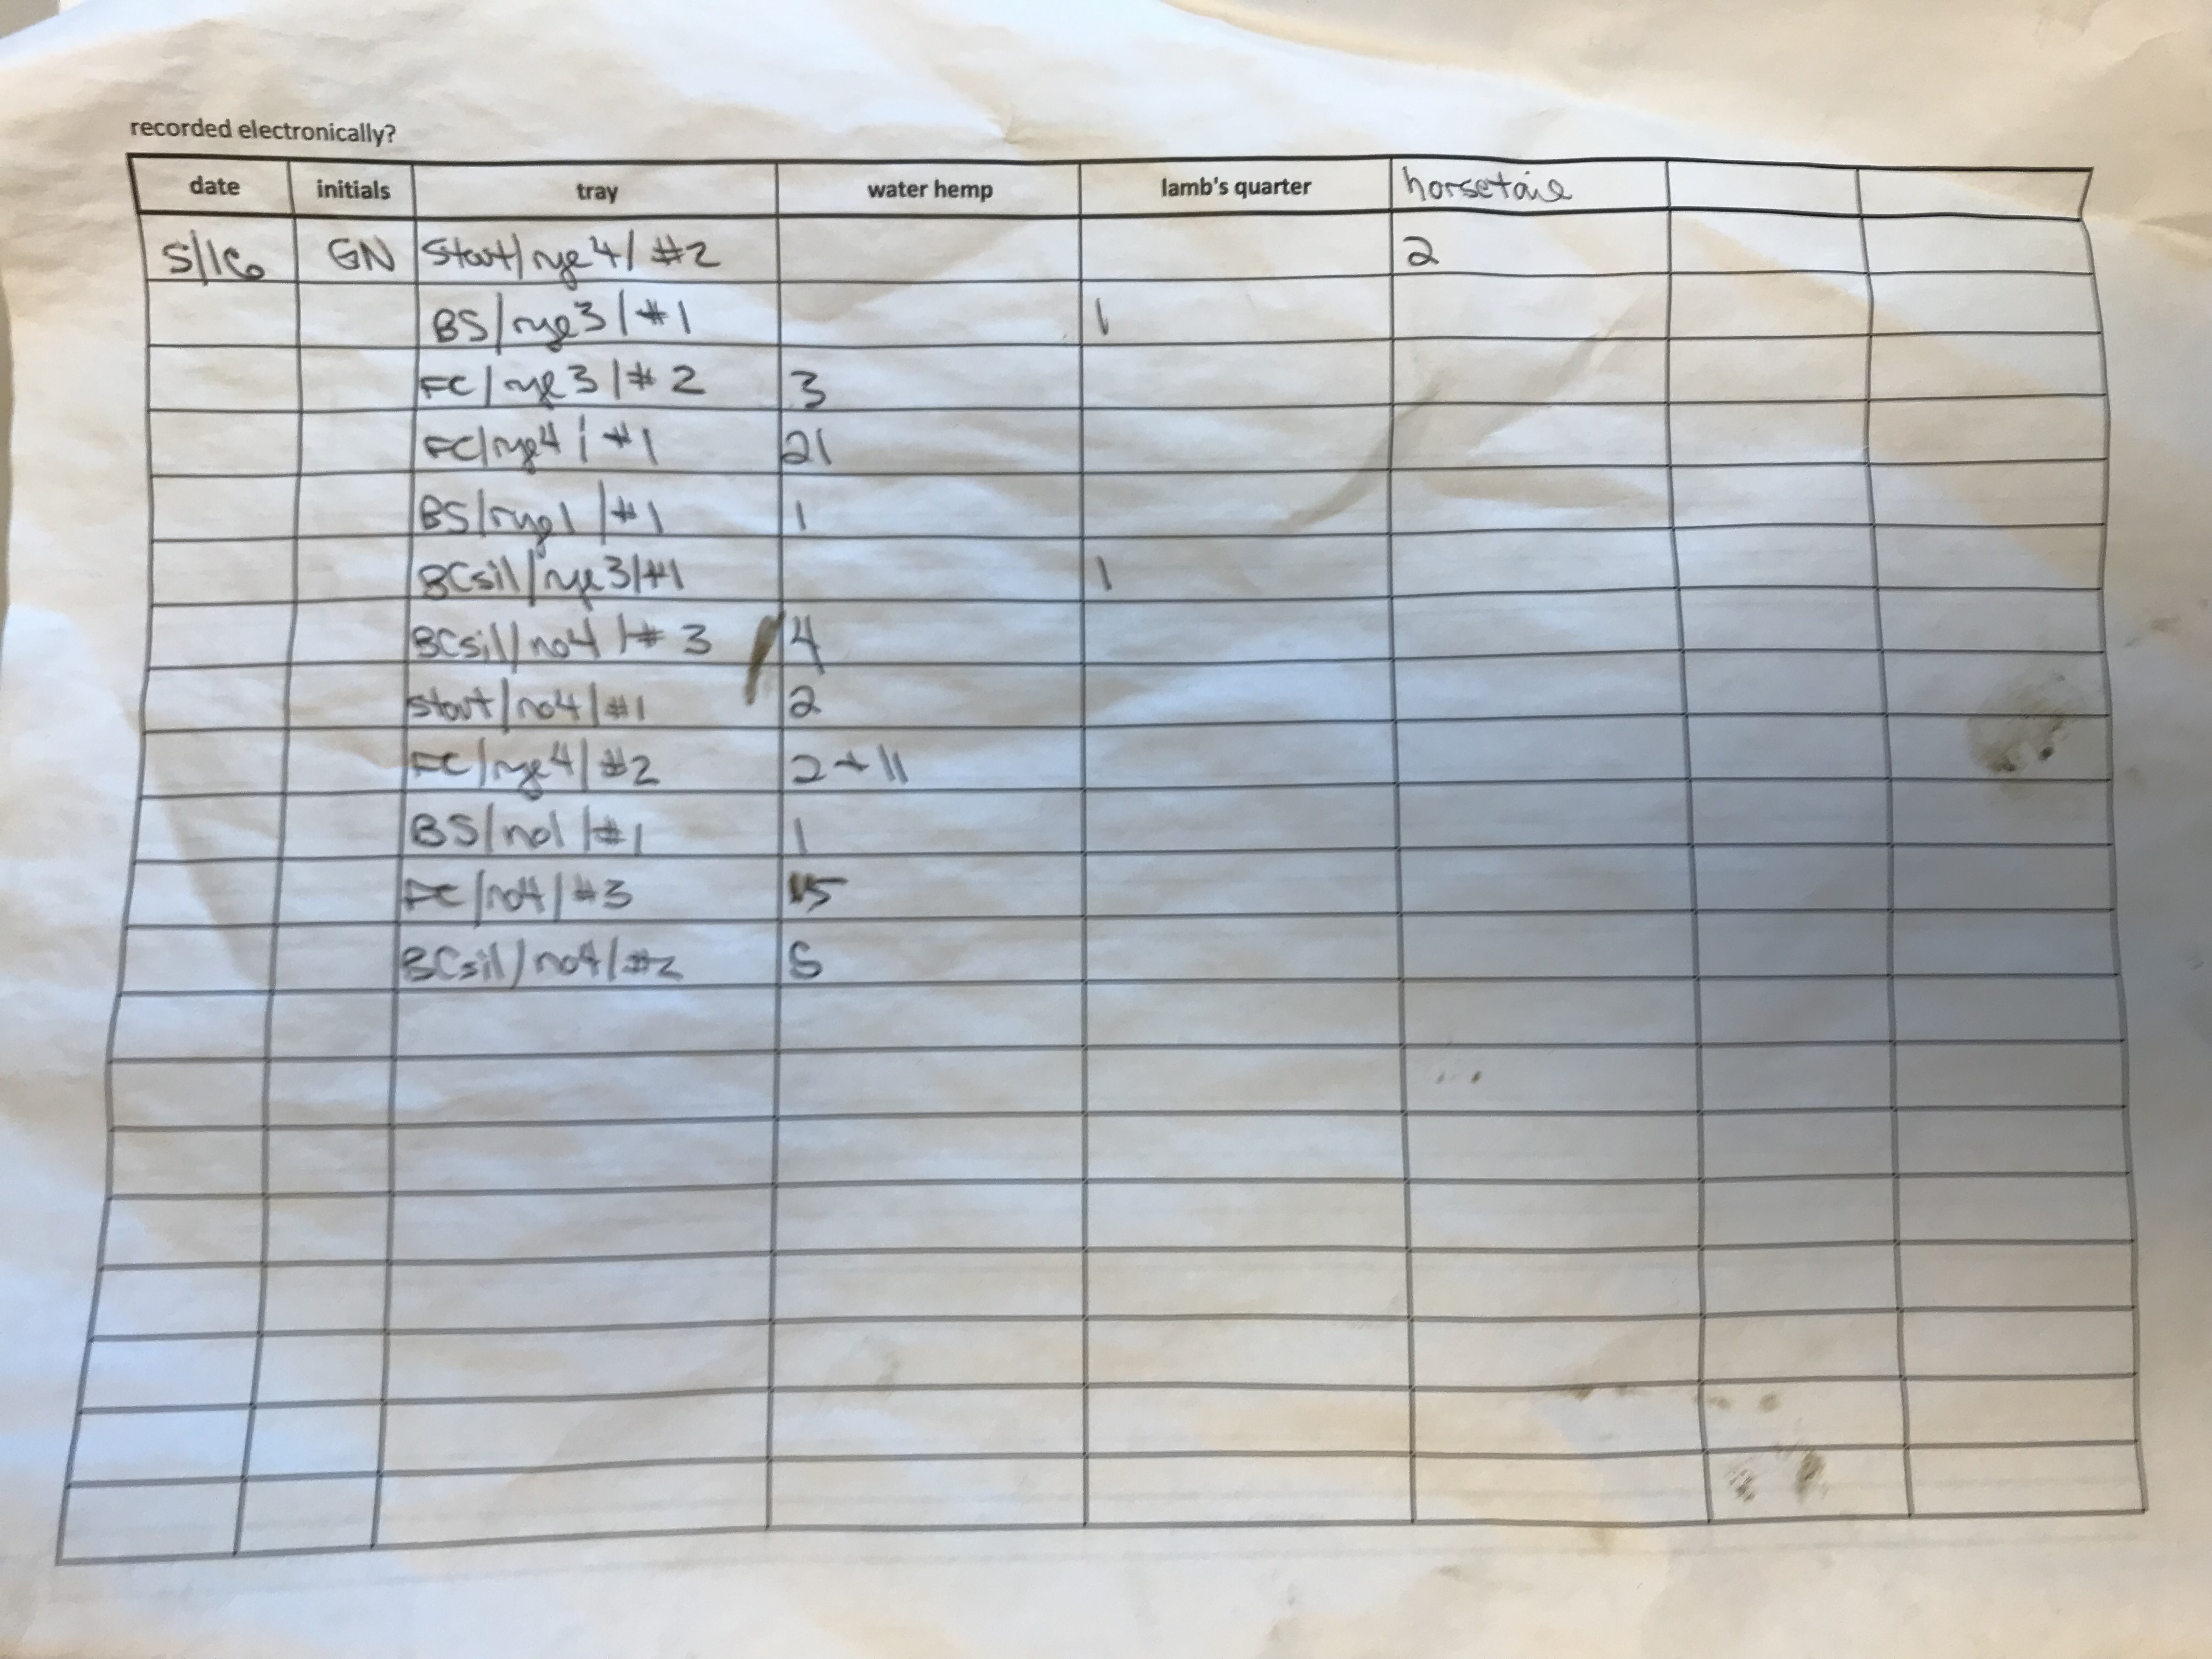 recorded electronically?
date initials tray water hemp lamb's quarter horsetail
5/16 GN Start/rye4/#2 2
BS/rye3/#1 1
FC/rye3/#2 3
FC/rye4/#1 21
BS/rye1/#1 1
BCsil/rye3/#1 1
BCsil/no4/#3 4
Start/no4/#1 2
FC/rye4/#2 2+11
BS/no1/#1 1
FC/no4/#3 15
BCsil/no4/#2 5